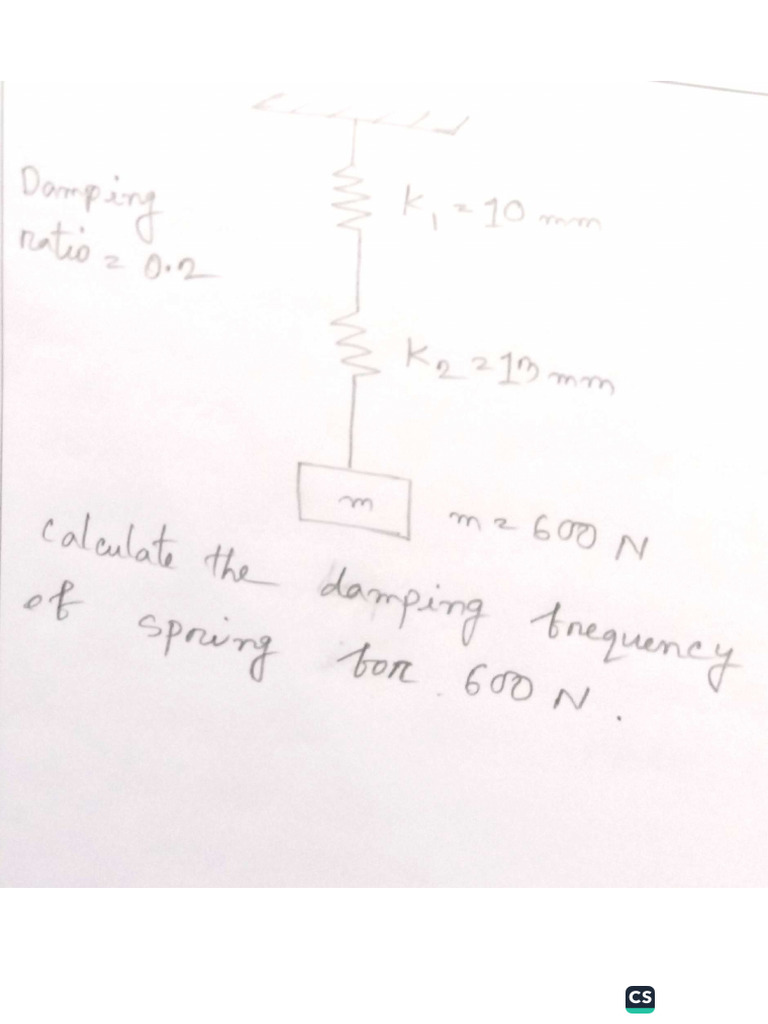 Damping
ratio = 0.2
K1 = 10 mm
K2 = 13 mm
m
m = 600 N
Calculate the damping frequency
of spring for 600 N.
CS